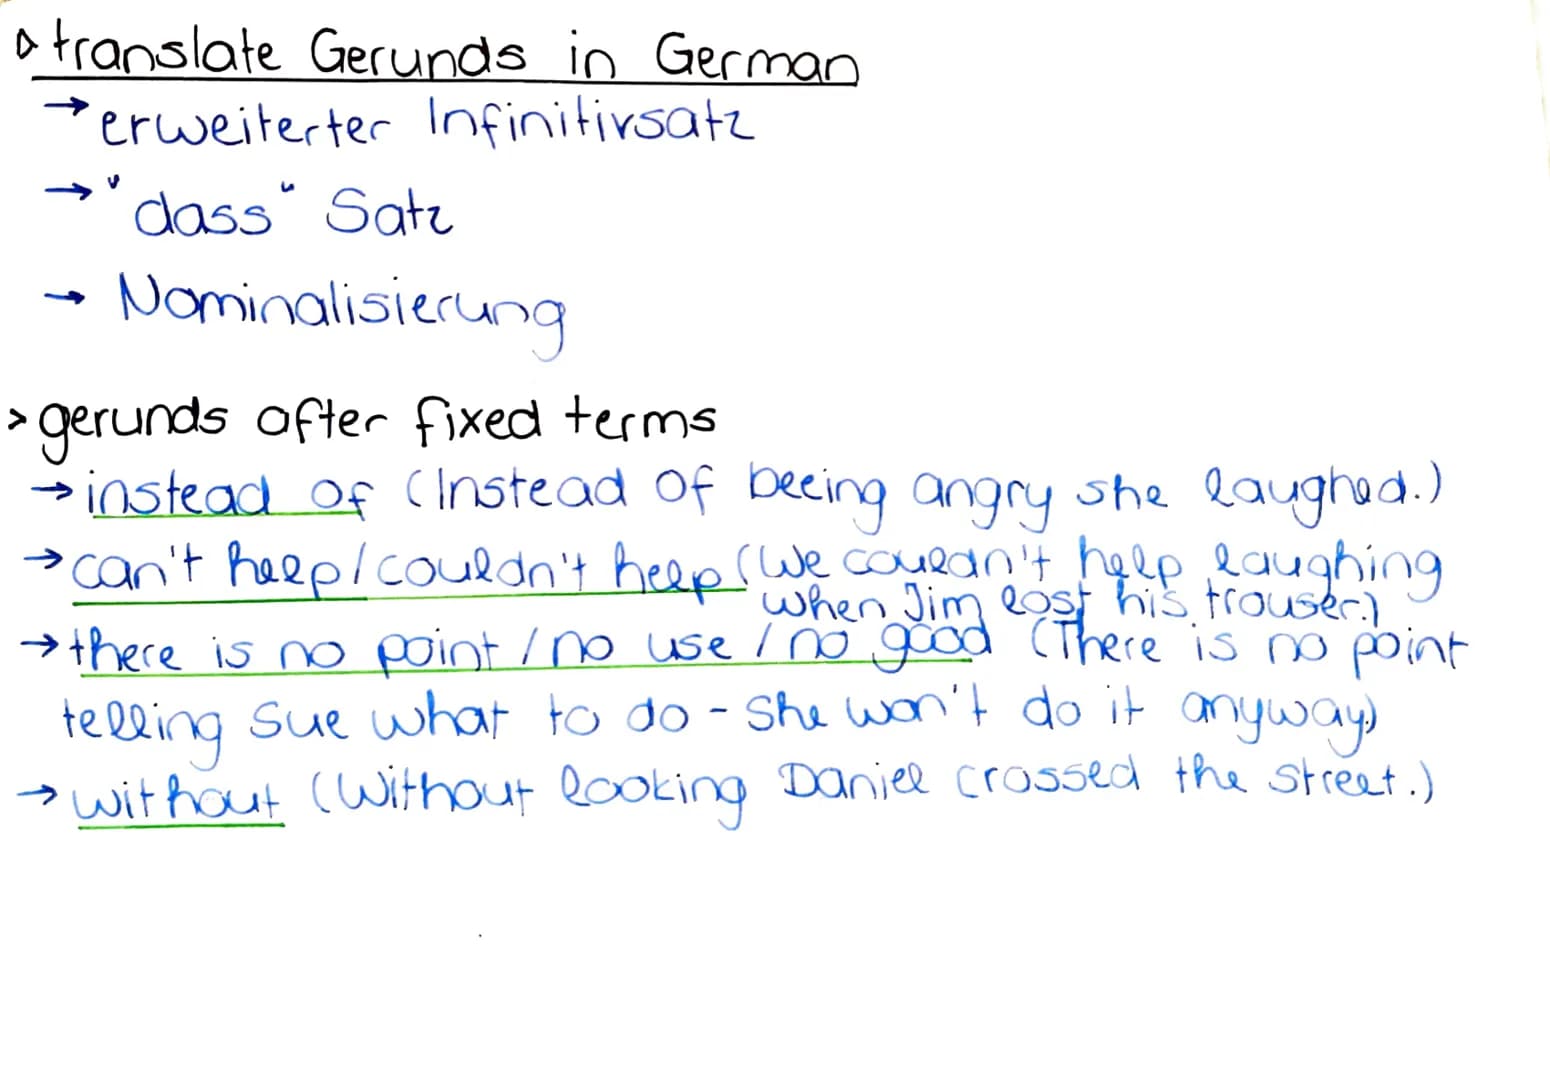 ▷ translate Gerunds in German
→ erweiterter Infinitivsatz
→ "dass" Satz
→ Nominalisierung
> gerunds after fixed terms
→ instead of (Instead of beeing angry she laughed.)
→ can't help/couldn't help (We couldn't help laughing
when Jim lost his trouser.)
→ there is no point / no use / no good (There is no point
telling Sue what to do - She won't do it anyway)
→ without (Without looking Daniel crossed the street.)